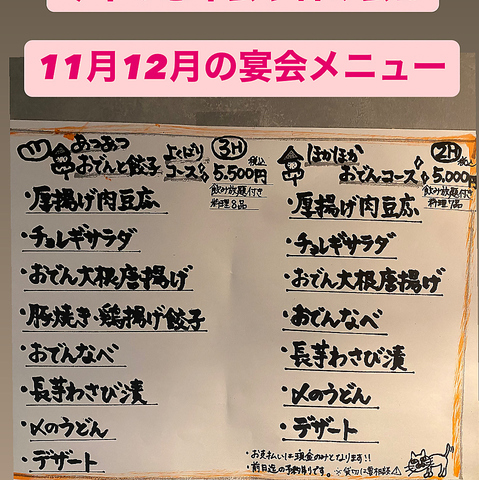 11月12月の宴会メニュー
あつあつ
おでんと餃子
よくばり
コース
3H
税込
5,500円
飲み放題付き
料理8品
・厚揚げ肉豆広
・チョレギサラダ
・おでん大根唐揚げ
・豚焼き・鶏揚げ餃子
・おでんなべ
・長芋わさび漬
・〆のうどん
・デザート
ほかほか
おでんコース
2H
税込
5,000円
飲み放題付き
料理7品
・厚揚げ肉豆広
・チョレギサラダ
・おでん大根唐揚げ
・おでんなべ
・長芋わさび漬
・〆のうどん
・デザート
・お支払いは現金のみとなります!!
・前日迄の予約制です。※貸切は要相談